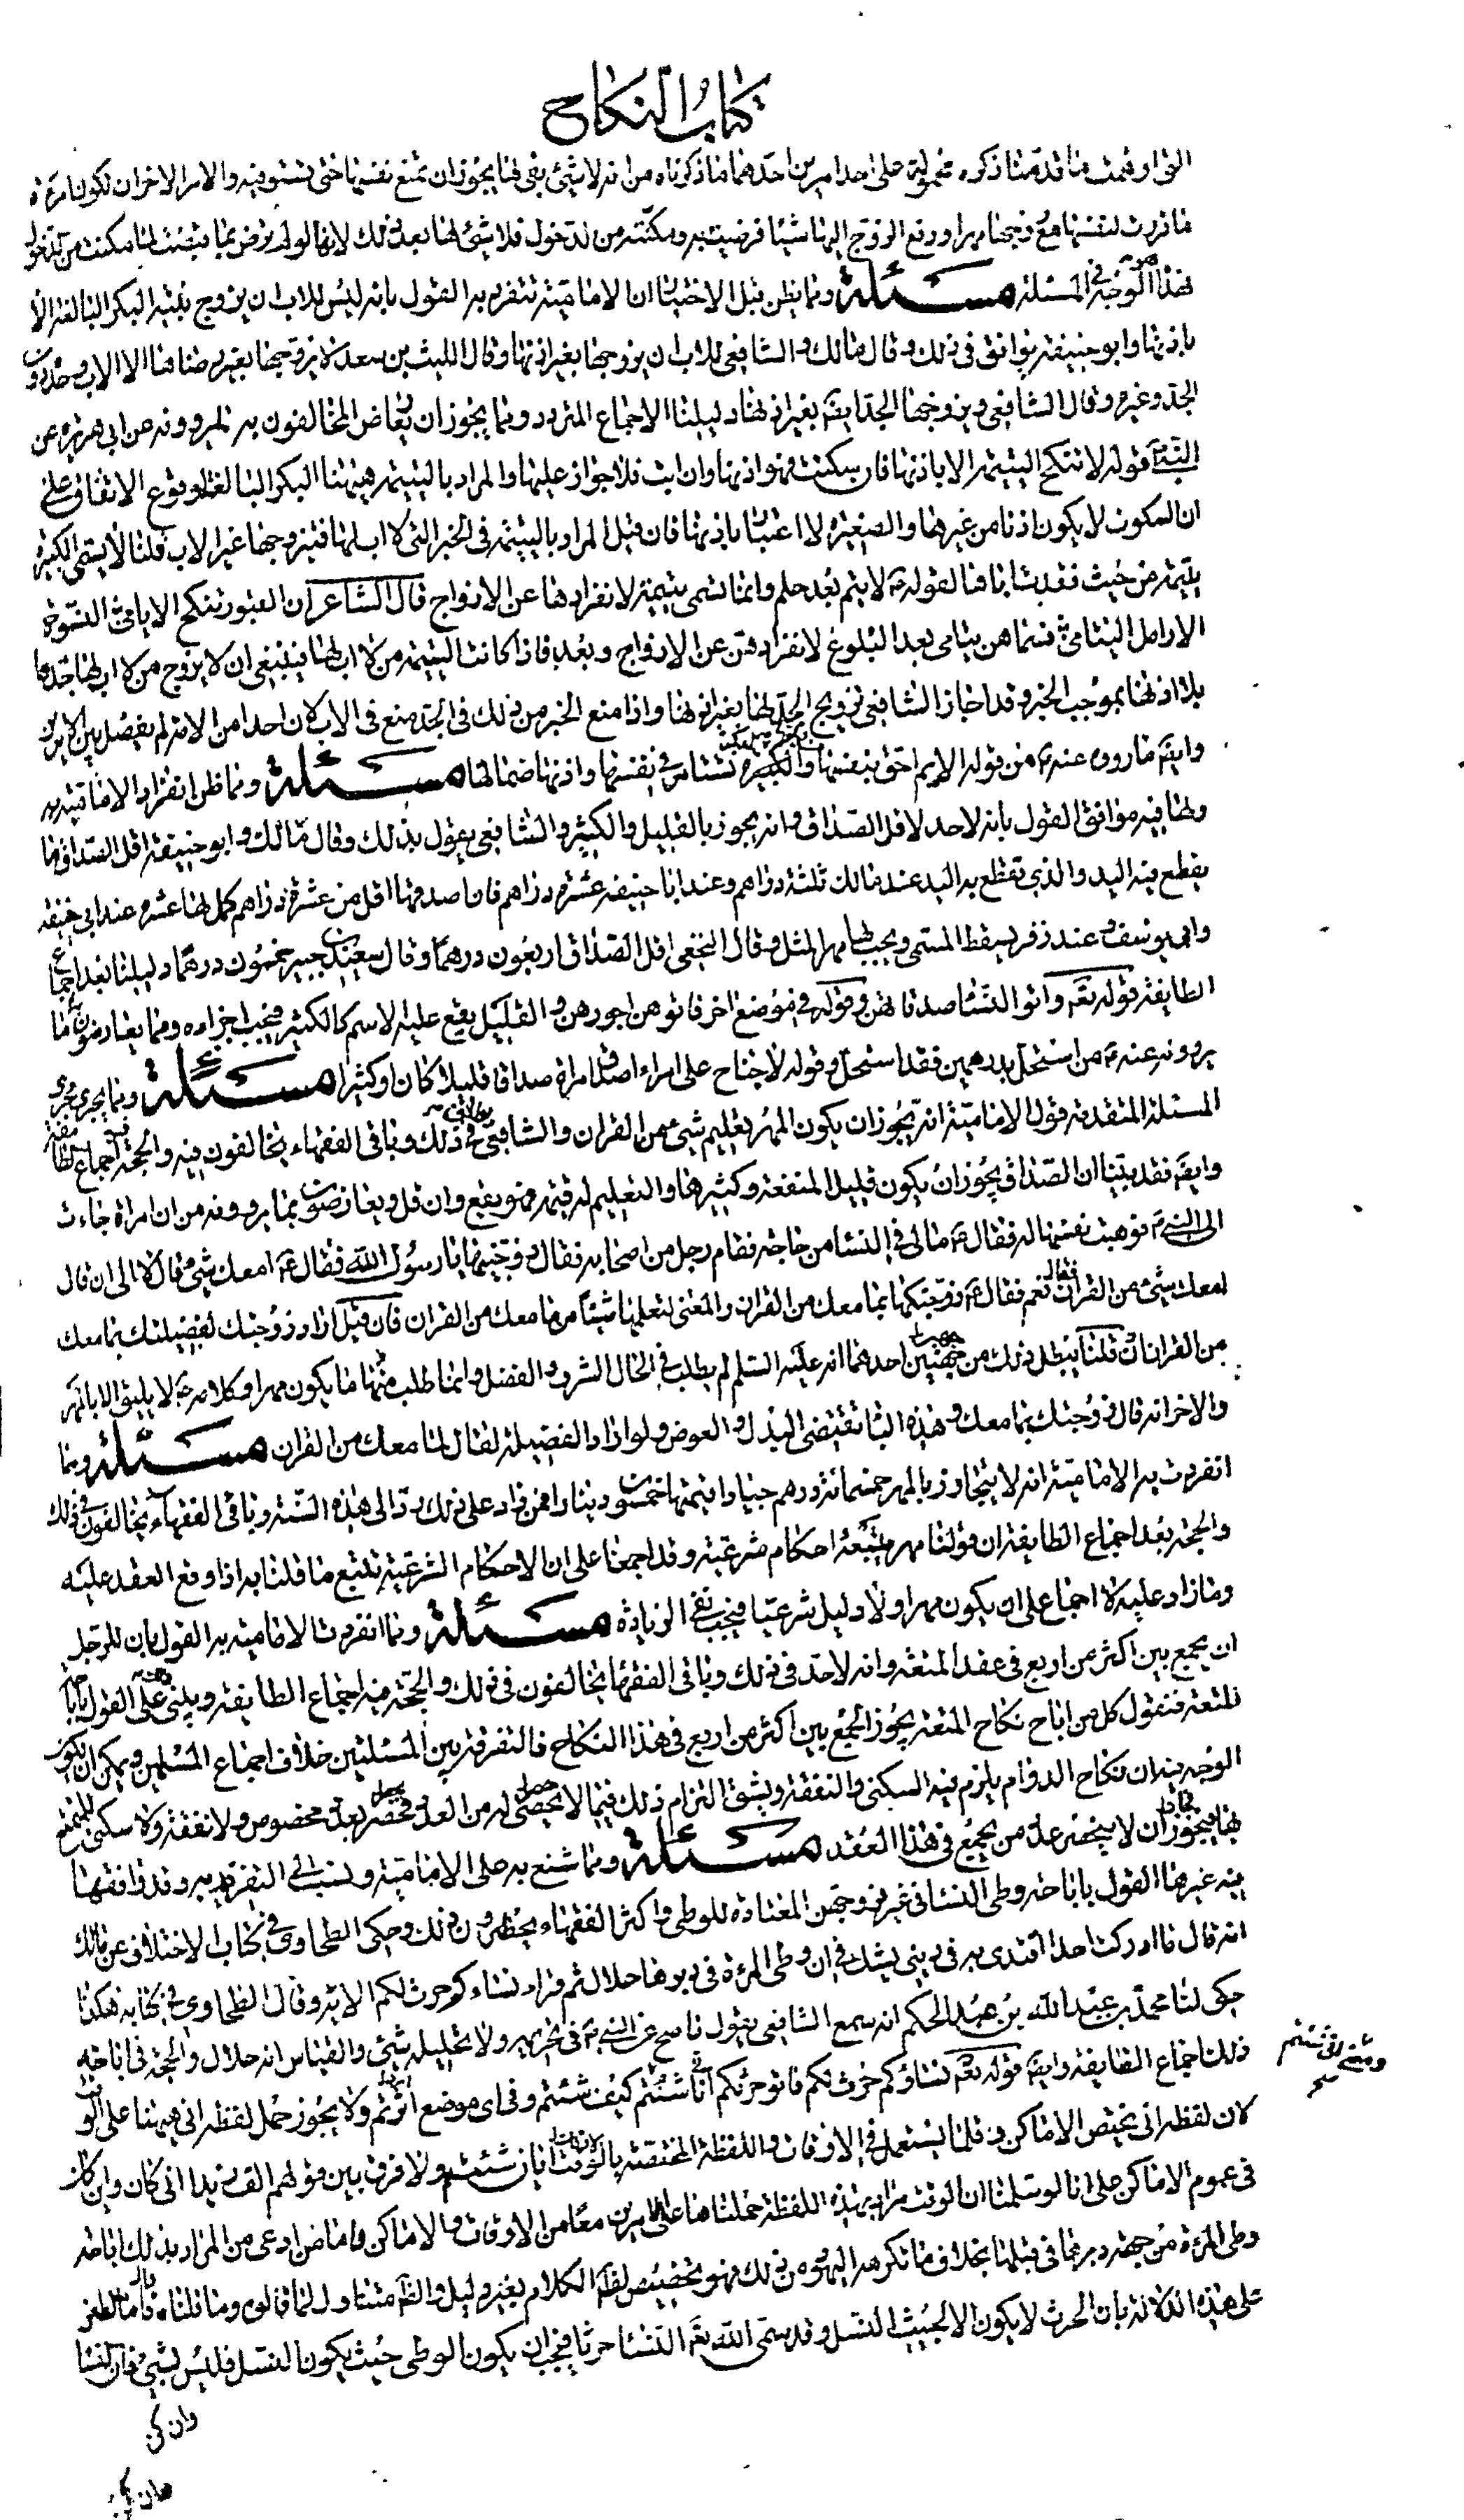 كتاب النكاح
التى اوقعت ما قدمنا ذكره محمولة على احد امرين احدهما ما ذكرناه من انه لا شئ بقى لها يجوز ان تمنع نفسها حتى تستوفيه والامر الاخر ان تكون امرءة
ما قررت لنفسها مع زوجها مهرا ودفع الزوج اليها شيئا فرضيت به ومكنته من الدخول فلا شئ لها بعد ذلك لانها لو لم ترض بما قبضت لما مكنت من الدخول
فهذا الوجه فى المسئلة مسئلة ومما يظن قبل الاختبار ان الامامية تنفرد به القول بانه ليس للاب ان يزوج بنته البكر البالغة الا
باذنها وابو حنيفة يوافق فى ذلك وقال مالك والشافعى للاب ان يزوجها بغير اذنها وقال الليث بن سعد لا يزوجها بغير رضاها الا الاب وحده دون
الجد وغيره وقال الشافعى ويزوجها الجد ايضا بغير اذنها دليلنا الاجماع المتردد ومما يجوز ان يعارض المخالفون به المروونه عن ابى هريرة عن
النبى ص قوله لا تنكح اليتيمة الا باذنها فان سكتت فهو اذنها وان ابت فلا جواز عليها والمراد باليتيمة هيهنا البكر البالغة لوقوع الاتفاق على
ان السكوت لا يكون اذنا من غيرها والصغيرة لا اعتبار باذنها فان قيل المراد باليتيمة فى الخبر التى لا اب لها فيزوجها غير الاب قلنا لا يسمى الكبيرة
يتيمة من حيث فقدت اباها لقوله ع لا يتم بعد حلم وانما تسمى يتيمة لانفرادها عن الازواج قال الشاعر ان القبور تنكح الايامى النسوة
الارامل اليتامى فسماهن يتامى بعد البلوغ لانفرادهن عن الازواج وبعد فاذا كانت اليتيمة من لا اب لها فينبغى ان لا يزوج من لا اب لها جدها
بلا اذنها بموجب الخبر وقد اجاز الشافعى تزويج الجد لها بغير اذنها واذا منع الخبر من ذلك فى الجد منع فى الاب لان احدا من الامة لم يفصل بين الامرين
وايضا ما روى عنه ع من قوله الايم احق بنفسها والبكر تستامر فى نفسها واذنها صماتها مسئلة ومما ظن انفراد الامامية به
ولها فيه موافق القول بانه لا حد لاقل الصداق وانه يجوز بالقليل والكثير والشافعى يقول بذلك وقال مالك وابو حنيفة اقل الصداق ما
يقطع فيه اليد والذى تقطع به اليد عند مالك ثلثة دراهم وعند ابا حنيفه عشرة دراهم فان اصدقها اقل من عشرة دراهم كمل لها عشره عند ابى حنيفه
وابى يوسف وعند زفر يسقط المسمى ويجب لها مهر المثل وقال النخعى اقل الصداق اربعون درهما وقال سعيد بن جبير خمسون درهما دليلنا بعد اجماع
الطايفة قوله تعه واتوا النساء صدقاتهن وقوله فى موضع اخر فاتوهن اجورهن والقليل يقع عليه الاسم كالكثير فيجب اجزاءه ومما يعارضون به ما
يروونه عنه ع من استحل بدرهمين فقد استحل وقوله لا جناح على امراء اصدق امراة صداقا قليلا كان او كثيرا مسئلة ومما يجرى مجرى
المسئلة المتقدمة قول الامامية انه يجوز ان يكون المهر تعليم شئ من القران والشافعى يوافق فى ذلك وباقى الفقهاء يخالفون فيه والحجة اجماع الطايفة
وايضا فقد بينا ان الصداق يجوز ان يكون قليل المنفعة وكثيرها والتعليم له قيمة فهو يقع وان قل ويعارضون بما يروونه من ان امراة جاءت
الى النبى ص فوهبت نفسها له فقال ع مالى فى النساء من حاجة فقام رجل من اصحابه فقال زوجنيها يا رسول الله فقال ع امعك شئ فقال لا الى ان قال
امعك شئ من القران فقال نعم فقال ع زوجتكها بما معك من القران والمعنى لتعلمها شيئا مما معك من القران فان قيل اراد زوجتك لفضيلتك بما معك
من القران قلنا يبطل ذلك من جهتين احدهما انه عليه السلم لم يطلب فى الحال الشرف والفضل وانما طلب منها ما يكون مهرا وكلامه ع لا يليق الا بالمهر
والاخر انه قال زوجتك بما معك وهذه الباء تقتضى البدل والعوض ولو اراد الفضيلة لقال لما معك من القران مسئلة ومما
انفردت به الامامية انه لا يتجاوز بالمهر خمسمائة درهم جيادا قيمتها خمسون دينارا فمن زاد على ذلك رد الى هذه السنة وباقى الفقهاء يخالفون فى ذلك
والحجة بعد اجماع الطايفة ان قولنا مهر يتبعه احكام شرعية وقد اجمعنا على ان الاحكام الشرعية تتبع ما قلنا به اذا وقع العقد عليه
وما زاد عليه لا اجماع على ان يكون مهرا ولا دليل شرعيا فيجب نفى الزيادة مسئلة ومما انفردت الامامية به القول بان للرجل
ان يجمع بين اكثر من اربع فى عقد المتعة وانه لا حد فى ذلك وباقى الفقهاء يخالفون فى ذلك والحجة فيه اجماع الطايفة ويبنى على القول باباحة
المتعة فنقول كل من اباح نكاح المتعة يجوز الجمع بين اكثر من اربع فى هذا النكاح فالتفرقة بين المسئلتين خلاف اجماع المسلمين ويمكن ان يكون
الوجه فيه ان نكاح الدوام يلزم فيه السكنى والنفقة ويشق التزام ذلك فيما لا يحصى له من العدد فحصر بعدد مخصوص ولا نفقة ولا سكنى للمتمتع
بها فيجوز ان لا ينحصر عدد من يجمع فى هذا العقد مسئلة ومما شنع به على الامامية ونسبت الى التفرد به وقد وافقها
فيه غيرها القول باباحة وطى النساء فى غير فروجهن المعتادة للوطى واكثر الفقهاء يحظرون ذلك وحكى الطحاوى فى كتاب الاختلاف عن مالك
انه قال ما ادركت احدا اقتدى به فى دينى يشك فى ان وطى المرءة فى دبرها حلال ثم قراء نساءكم حرث لكم الاية وقال الطحاوى فى كتابه هكذا
حكى لنا محمد بن عبد الله بن عبد الحكم انه سمع الشافعى يقول ما صح عن النبى ص فى تحريمه ولا تحليله شئ والقياس انه حلال والحجة فى اباحة
ذلك اجماع الطايفة وايضا قوله تعه نساؤكم حرث لكم فاتوا حرثكم انى شئتم كيف شئتم وفى اى موضع اثرتم ولا يجوز حمل لفظه انى هيهنا على الوقت
ومتى شئتم
لان لفظه انى يختص الاماكن وقلما يستعمل فى الاوقات واللفظة المختصة بالوقت ايان شئتم ولا فرق بين قولهم الق زيدا انى كان واين كان
فى عموم الاماكن على انا لو سلمنا ان الوقت مراد بهذه اللفظة حملناها على الامرين معا من الاوقات والاماكن فاما من ادعى من المراد بذلك اباحة
وطى المرءة من جهة دبرها فى قبلها بخلاف ما تكرهه اليهود من ذلك فهو تخصيص لظه الكلام بغير دليل والظه متناول لما قالوه وما قلناه فاما الطعن
على هذه الدلالة بان الحرث لا يكون الا بحيث النسل وقد سمى الله تعه النساء حرثا فيجب ان يكون الوطى حيث يكون النسل فليس بشئ فان النساء
وان كن